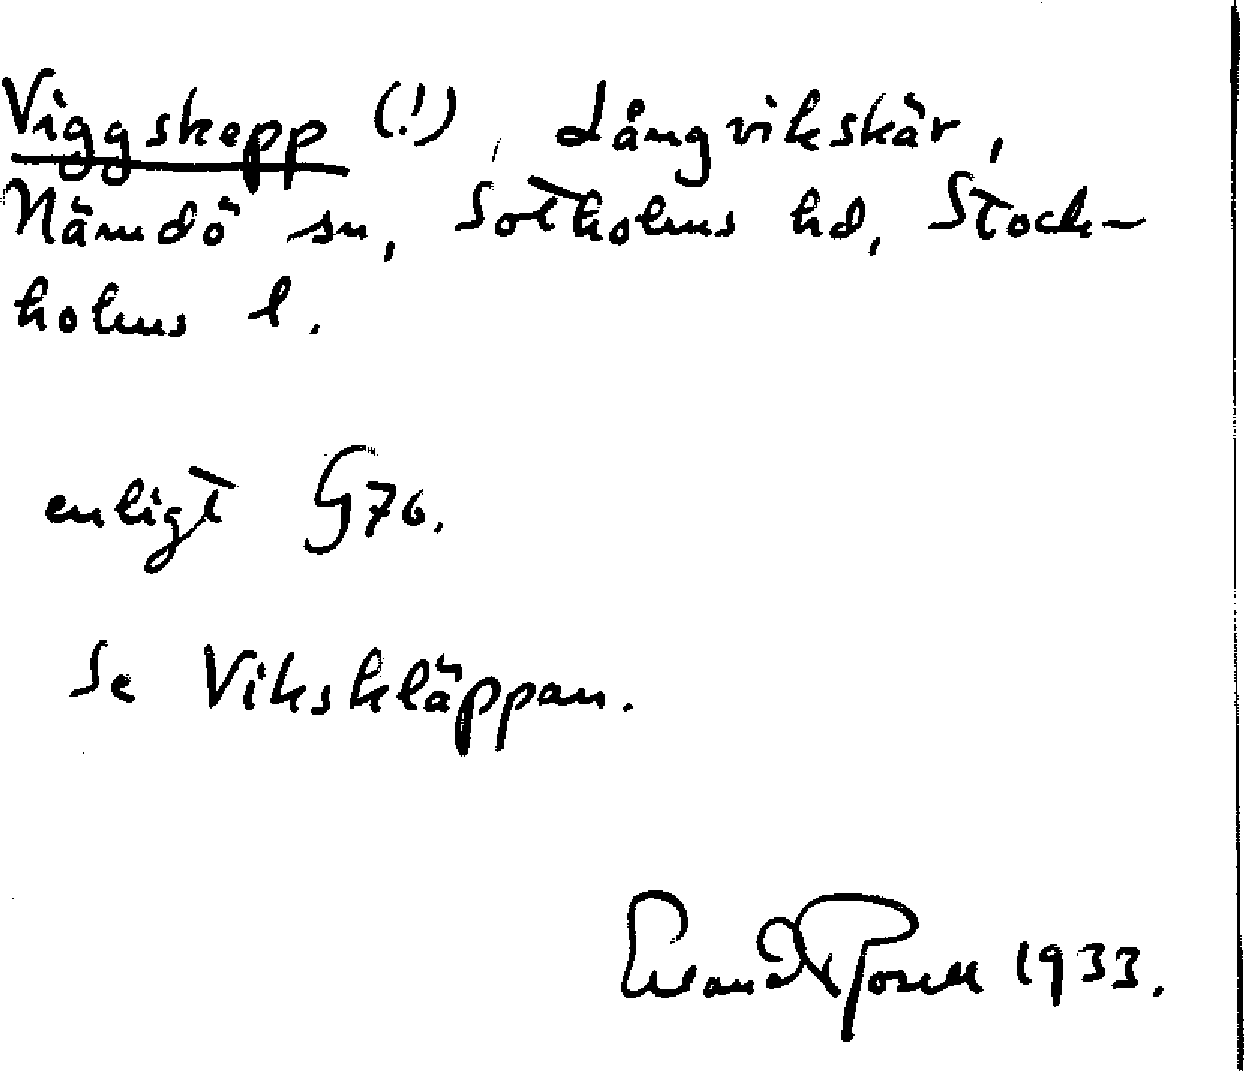 Viggskepp (!), Långvikskär,
Nämdö sn, Sotholms hd, Stock-
holms l.
enligt G76.
Se Vikskläppan.
1933.